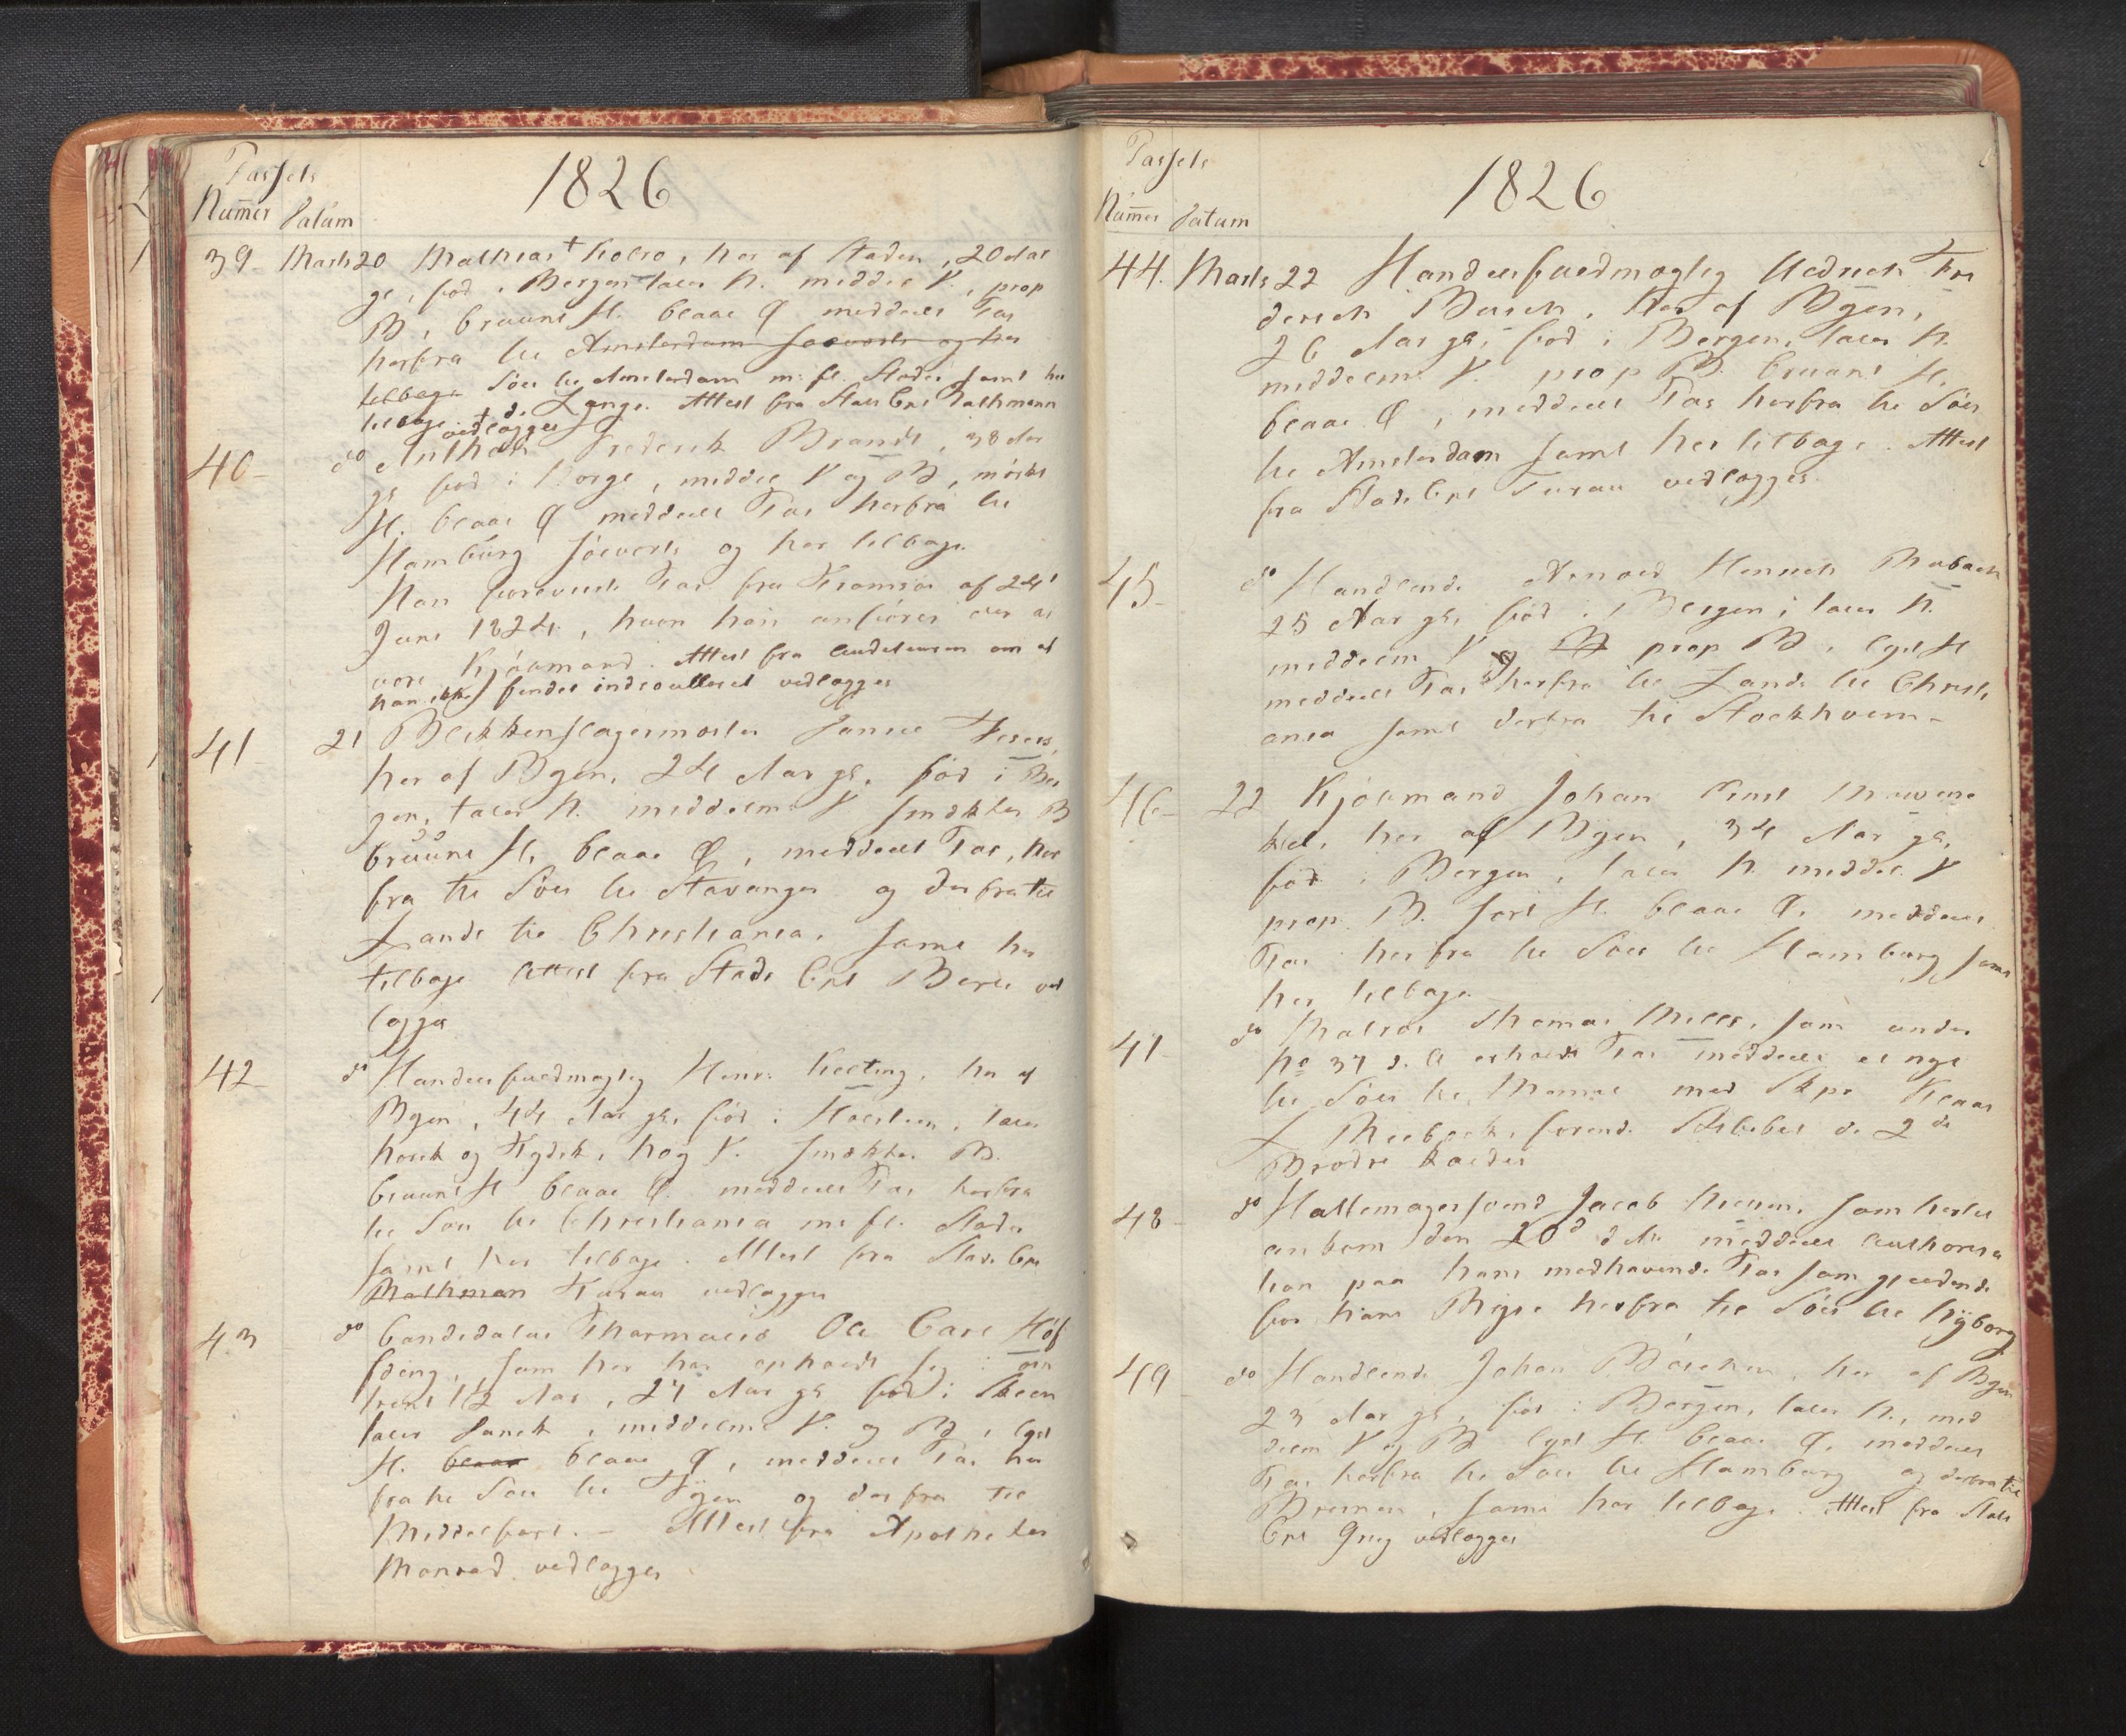 Passets
Numer Datum
1826
39 Marts 20 Mathias Holbo, her af Staden, 20 Aar
gl, fød i Bergen taler N. middel V., prop
B, bruunt H. blaae Ø meddeelt Pas
herfra til Amsterdam søeverts og her
tilbage Søes til Amsterdam m: fl. Stæder samt her
tilbage d. Lange. Attest fra Stads Cpt Dathmann
vedlægges
40 do Anthon Frederik Brandt, 38 Aar
gl fød i Norge, middel V og B, mørkt
H. blaae Ø meddeelt Pas herfra til
Hamburg søeverts og her tilbage.
Han foreviiste Pas fra Tromsøe af 24
Juni 1824, hvori han anføres der at
være Kjøbmand. Attest fra om at
han ikke findes indroulleret vedlægges
41 21 Blikkenslagermester Daniel
her af Byen, 24 Aar gl. fød i Ber
gen, taler N. middelm. V smækker B
bruunt H, blaae Ø, meddeelt Pas, her
fra til Søes til Stavanger og derfra til
Lands til Christiania, samt her
tilbage Attest fra Stads Cpt Børu ved
lægges
42 do Handelsfuldmægtig Henr: Kelting, her af
Byen, 44 Aar gl, fød i Holsteen, taler
norsk og tydsk, høy V. smækker B.
bruunt H blaae Ø. meddeelt Pas herfra
til Søes til Christiania m: fl. Stæder
samt her tilbage. Attest fra Stads Cpt
Dathman Turau vedlægges
43 do Candidatus Pharmacie Ole Carl Høf
fding, som her har opholdt sig i om
trent 1/2 Aar, 27 Aar gl fød i Skeen
taler Dansk, middelm. V. og B, lyst
H. blaae blaae Ø, meddeelt Pas her
fra til Søes til Fyen og derfra til
Middelfart. – Attest fra Apotheker
Monrad vedlægges
Passets
Numer Datum
1826
44. Marts 22 Handelsfuldmægtig Hedrich Fri
derich Busch, her af Byen,
26 Aar gl, fød i Bergen, taler N.
middelm. V. prop B. bruunt H.
blaae Ø, meddeelt Pas herfra til Søes
til Amsterdam samt her tilbage. Attest
fra Stads Cpt Turau vedlægges
45 do Handlende Arnold Henrich Mubach
25 Aar gl, fød i Bergen, taler N.
middelm V og B prop B, lyst H
meddeelt Pas herfra til Lands til Christi
ania samt derfra til Stockholm –
46 22 Kjøbmand Johan Ernst Mowinc
kel, her af Byen, 34 Aar gl,
fød i Bergen, taler N. middel V
prop. B. sort H. blaae Ø. meddeelt
Pas herfra til Søes til Hamburg samt
her tilbage
47 do Matros Thomas Mills, som under
No 37 d. A erholdt Pas meddeelt et nyt
til Søes til Memel med Skpr Klaas
L. førende Skibet d. 2de
Brødre kaldet
48 do Hattemagersvend Jacob som hertil
ankom den 20de ds meddeelt Authorisa
tion paa hans medhavende Pas som gjeldende
for hans Rejse herfra til Søes til Nyborg
49 do Handlende Johan Bøschen, her af Byen
23 Aar gl, fød i Bergen, taler N., mid
delm V og B lyst H. blaae Ø. meddeelt
Pas herfra til Søes til Hamburg og derfra til
Bremen, samt her tilbage. Attest fra Stads
Cpt Grieg vedlægges